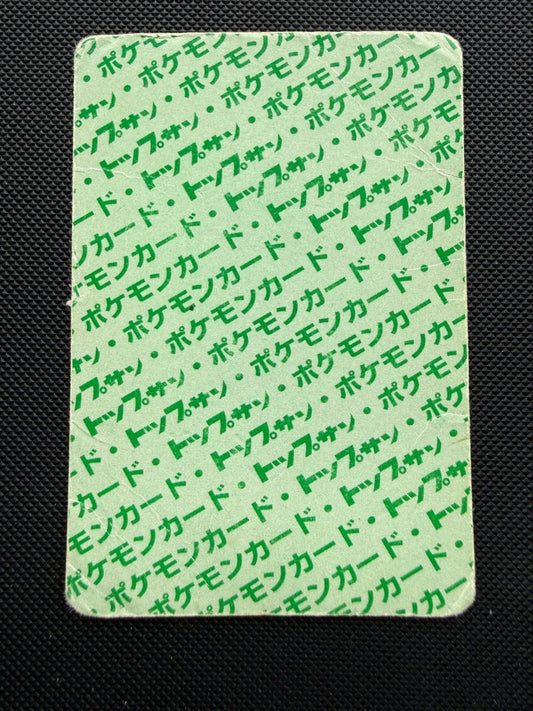 ・ポケモンカ
トップサン・ポケモンカー
・トップサン・ポケモンカー
カード・トップサン・ポケモンカ
モンカード・トップサン・ポケモ
ポケモンカード・トップサン・ポ
・ポケモンカード・トップサン
サン・ポケモンカード・トップ
トップサン・ポケモンカード・
・トップサン・ポケモンカード
カード・トップサン・ポケモンカ
モンカード・トップサン・ポケ
ポケモンカード・トップサン
ケモンカード・トップ
モンカード・